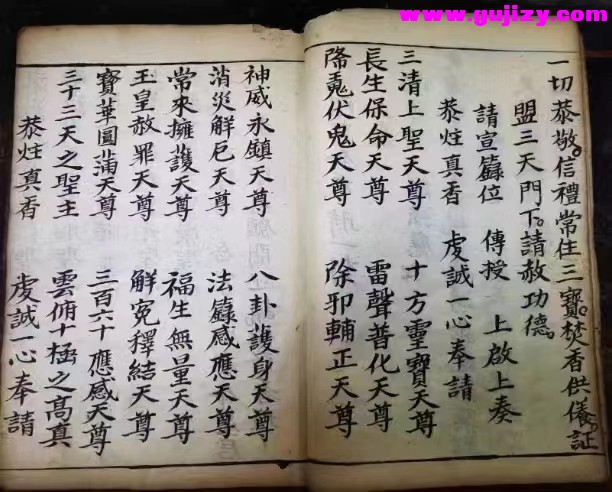 www.gujizy.com
一切恭敬信禮常住三寶焚香供儀証
盟三天門下請赦功德
請宣籙位 傳授 上啟上奏
恭炷真香 虔誠一心奉請
三清上聖天尊 十方靈寶天尊
長生保命天尊 雷聲普化天尊
降魔伏鬼天尊 除邪輔正天尊
神威永鎮天尊 八卦護身天尊
消災解厄天尊 法籙感應天尊
常來擁護天尊 福生無量天尊
玉皇赦罪天尊 解冤釋結天尊
寶華圓滿天尊 三百六十應感天尊
三十三天之聖主 雲俯十極之高真
恭炷真香 虔誠一心奉請